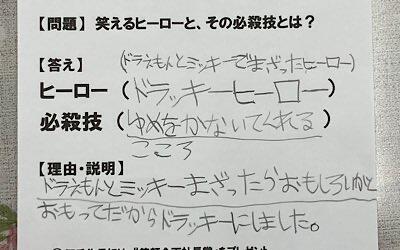 【問題】 笑えるヒーローと、その必殺技とは？
【答え】 (ドラえもんとミッキーでまざったヒーロー)
ヒーロー (ドラッキーヒーロー)
必殺技 (ゆめをかないてくれる)
こころ
【理由・説明】
ドラえもんとミッキーまざったらおもしろいかと
おもってだからドラッキーにしました。